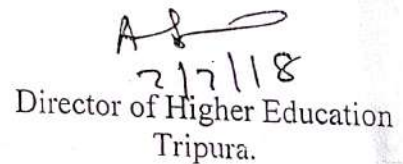 2/7/18
Director of Higher Education
Tripura.